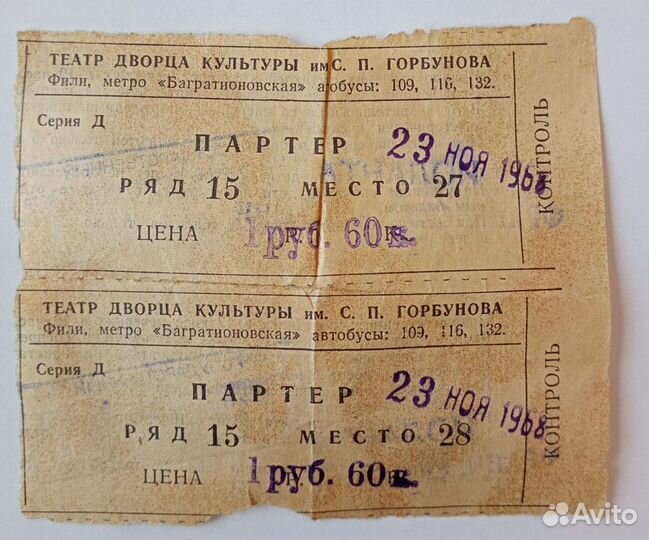 ТЕАТР ДВОРЦА КУЛЬТУРЫ им С. П. ГОРБУНОВА
Фили, метро «Багратионовская» автобусы: 109, 116, 132.
Серия Д
ПАРТЕР 23 НОЯ 1968
РЯД 15 МЕСТО 27
ЦЕНА 1 руб. 60 к.
КОНТРОЛЬ
ТЕАТР ДВОРЦА КУЛЬТУРЫ им. С. П. ГОРБУНОВА
Фили, метро «Багратионовская» автобусы: 109, 116, 132.
Серия Д
ПАРТЕР 23 НОЯ 1968
РЯД 15 МЕСТО 28
ЦЕНА 1 руб. 60 к.
КОНТРОЛЬ
Avito